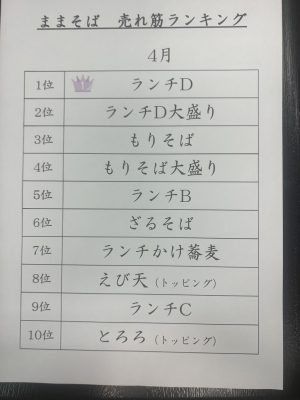 ままそば 売れ筋ランキング
4月
1位 ランチD
2位 ランチD大盛り
3位 もりそば
4位 もりそば大盛り
5位 ランチB
6位 ざるそば
7位 ランチかけ蕎麦
8位 えび天（トッピング）
9位 ランチC
10位 とろろ（トッピング）